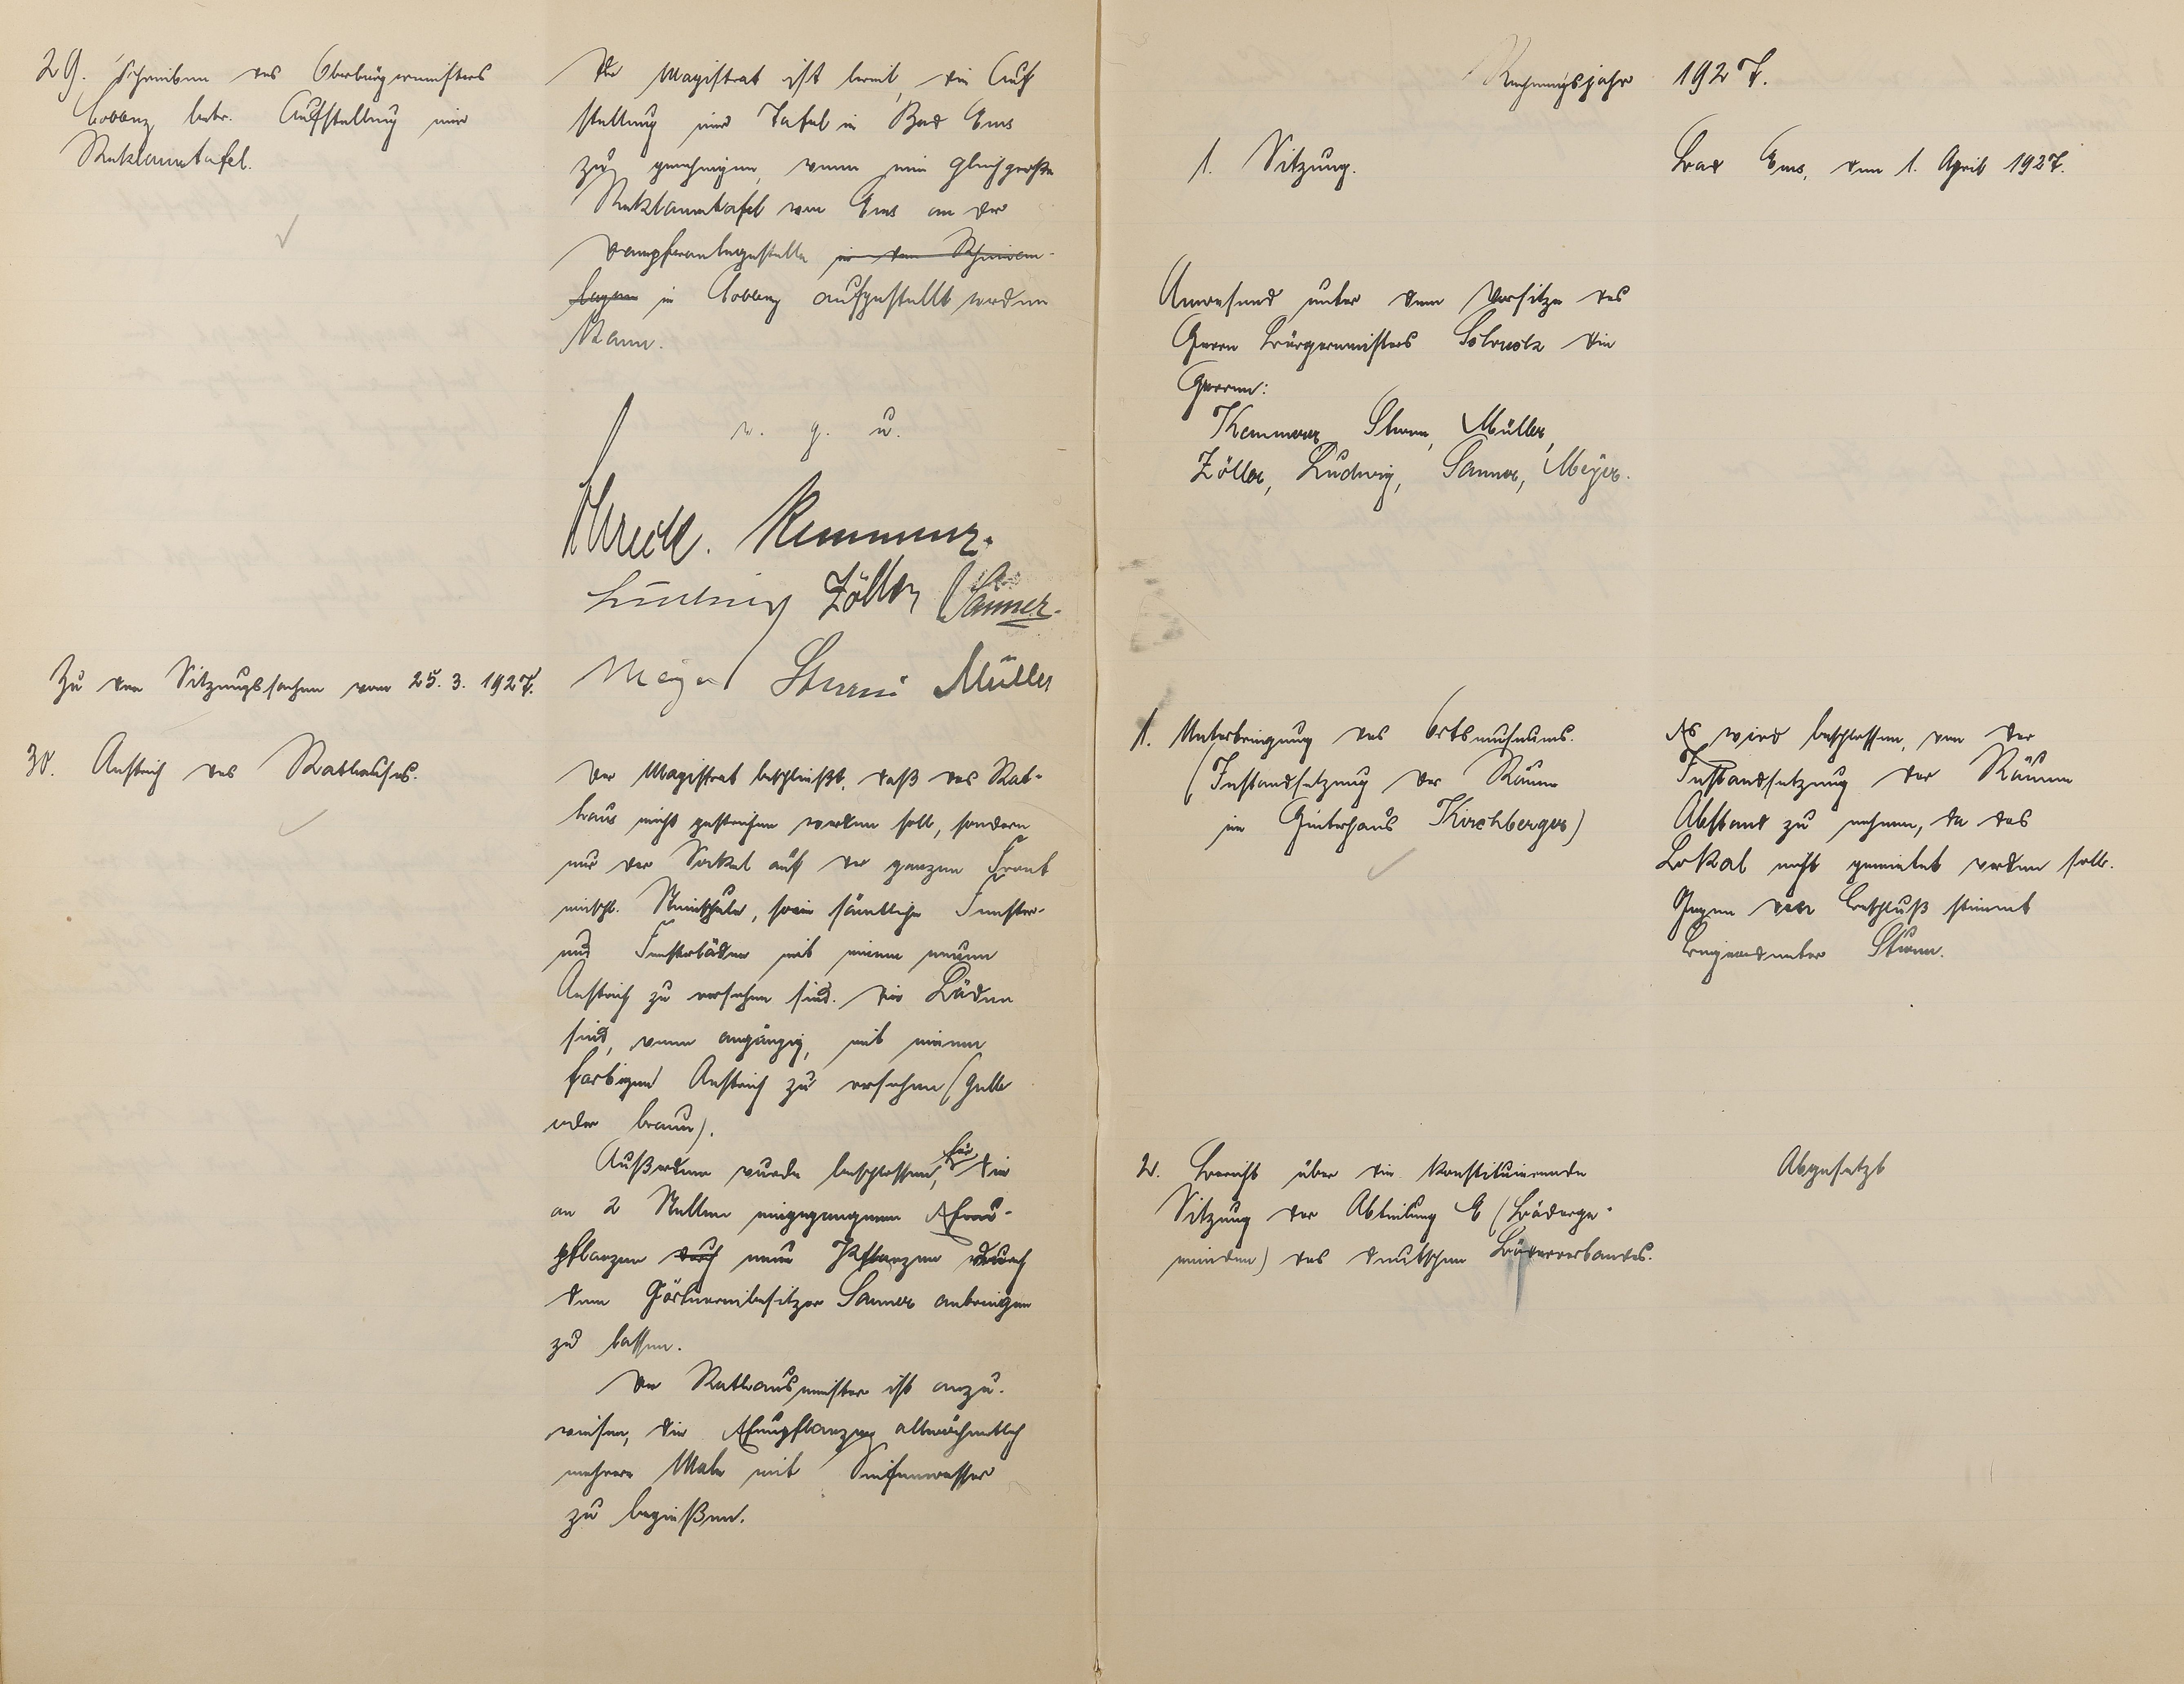 29. Schreiben des Oberbürgermeisters
Coblenz betr. Aufstellung einer
Reklametafel.
Der Magistrat ist bereit, die Auf
stellung einer Tafel in Bad Ems
zu genehmigen, wenn eine gleichgroße
Reklametafel von Ems an der
Dampferanlegestelle in den Rheinan-
lagen in Coblenz aufgestellt werden
kann.
v. g. u.
Schreck. Kemmerer.
Ludwig Zöller Sanner.
Meyer Sturm Müller
Zu den Sitzungssachen vom 25. 3. 1927.
30. Anstrich des Rathauses.
Der Magistrat beschließt, daß das Rat-
haus nicht gestrichen werden soll, sondern
nur der Sockel auf der ganzen Front
einschl. Steinsäule, sowie sämtliche Fenster-
und Fensterläden mit einem neuen
Anstrich zu versehen sind. Die Läden
sind, wenn angängig, mit einem
farbigen Anstrich zu versehen (gelb
oder braun).
Außerdem wurde beschlossen, für die
an 2 Stellen eingegangenen Efeu-
pflanzen durch neue Pflanzen durch
den Gärtnereibesitzer Sanner anbringen
zu lassen.
Der Rathausmeister ist anzu-
weisen, die Efeupflanzen allwöchentlich
mehrere Male mit Seifenwasser
zu begießen.
Rechnungsjahr 1927.
1. Sitzung.
Bad Ems, den 1. April 1927.
Anwesend unter dem Vorsitze des
Herrn Bürgermeisters Schreck die
Herren:
Kemmerer, Sturm, Müller,
Zöller, Ludwig, Sanner, Meyer.
1. Unterbringung des Ortsmuseums.
(Instandsetzung der Räume
im Hinterhaus Kirchberger)
Es wird beschlossen, von der
Instandsetzung der Räume
Abstand zu nehmen, da das
Lokal nicht gemietet werden soll.
Gegen den Beschluß stimmt
Beigeordneter Sturm.
2. Bericht über die konstituierende
Sitzung der Abteilung E (Bäderge-
meinden) des deutschen Bäderverbandes.
Abgesetzt